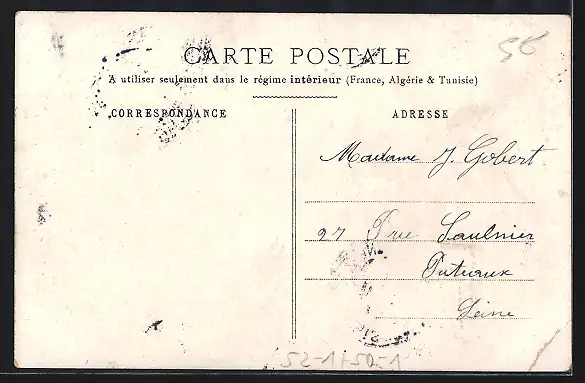 56
CARTE POSTALE
A utiliser seulement dans le régime intérieur (France, Algérie & Tunisie)
CORRESPONDANCE
ADRESSE
Madame J. Gobert
27 Rue Saulnier
Puteaux
Seine
52-1150-1